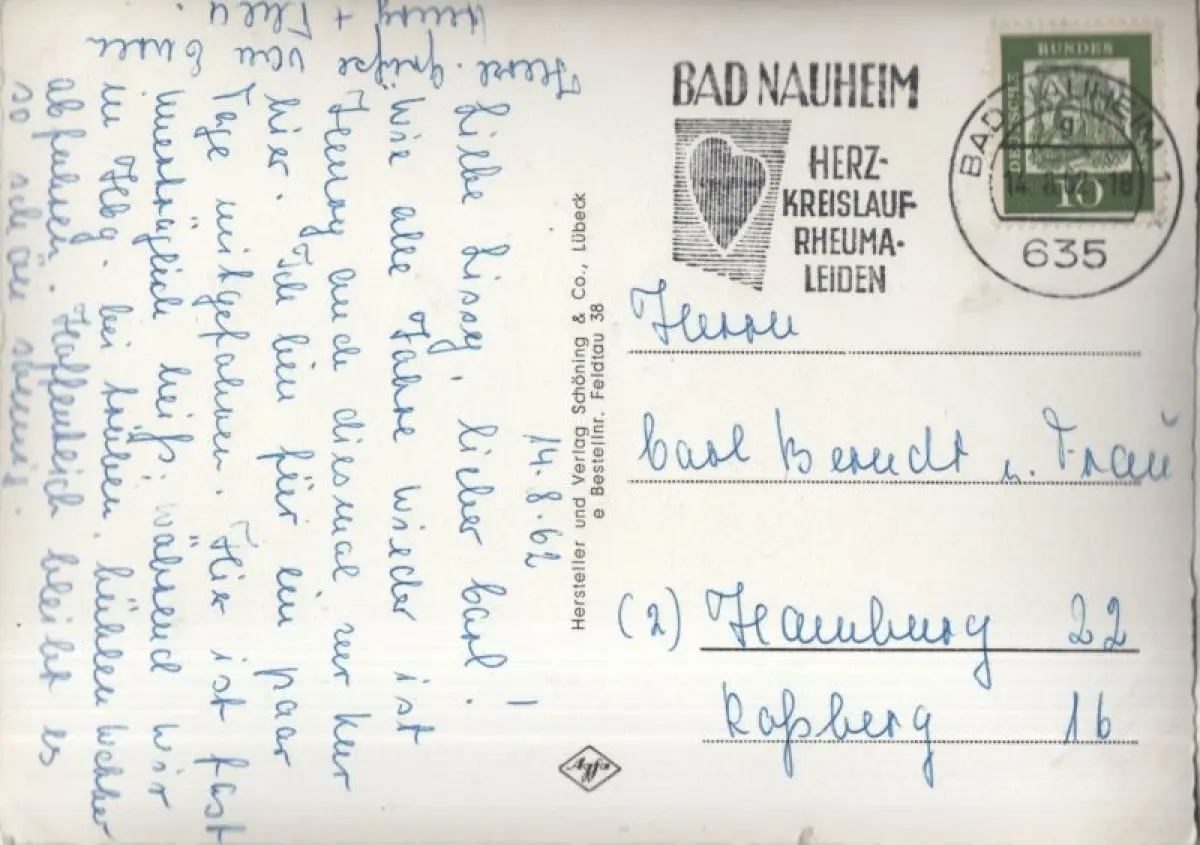 14.8.62
Liebe Lissy, lieber Carl!
Wie alle Jahre wieder ist
Henny auch diesmal zur Kur
hier. Ich bin für ein paar
Tage mitgefahren. Hier ist fast
unerträglich heiß, während wir
in Hbg. bei trüben, kühlen Wetter
abfuhren. Hoffentlich bleibt es
so schön sonnig.
Herzl. Grüße von Euren
Henny +
Hersteller und Verlag Schöning & Co., Lübeck
e Bestellnr. Feldtau 38
BAD NAUHEIM
HERZ-
KREISLAUF-
RHEUMA-
LEIDEN
DEUTSCHE
BUNDES
10
BAD NAUHEIM 1
g
14.8.62-18
635
Herrn
Carl Berndt u. Frau
(2) Hamburg 22
Roßberg 16